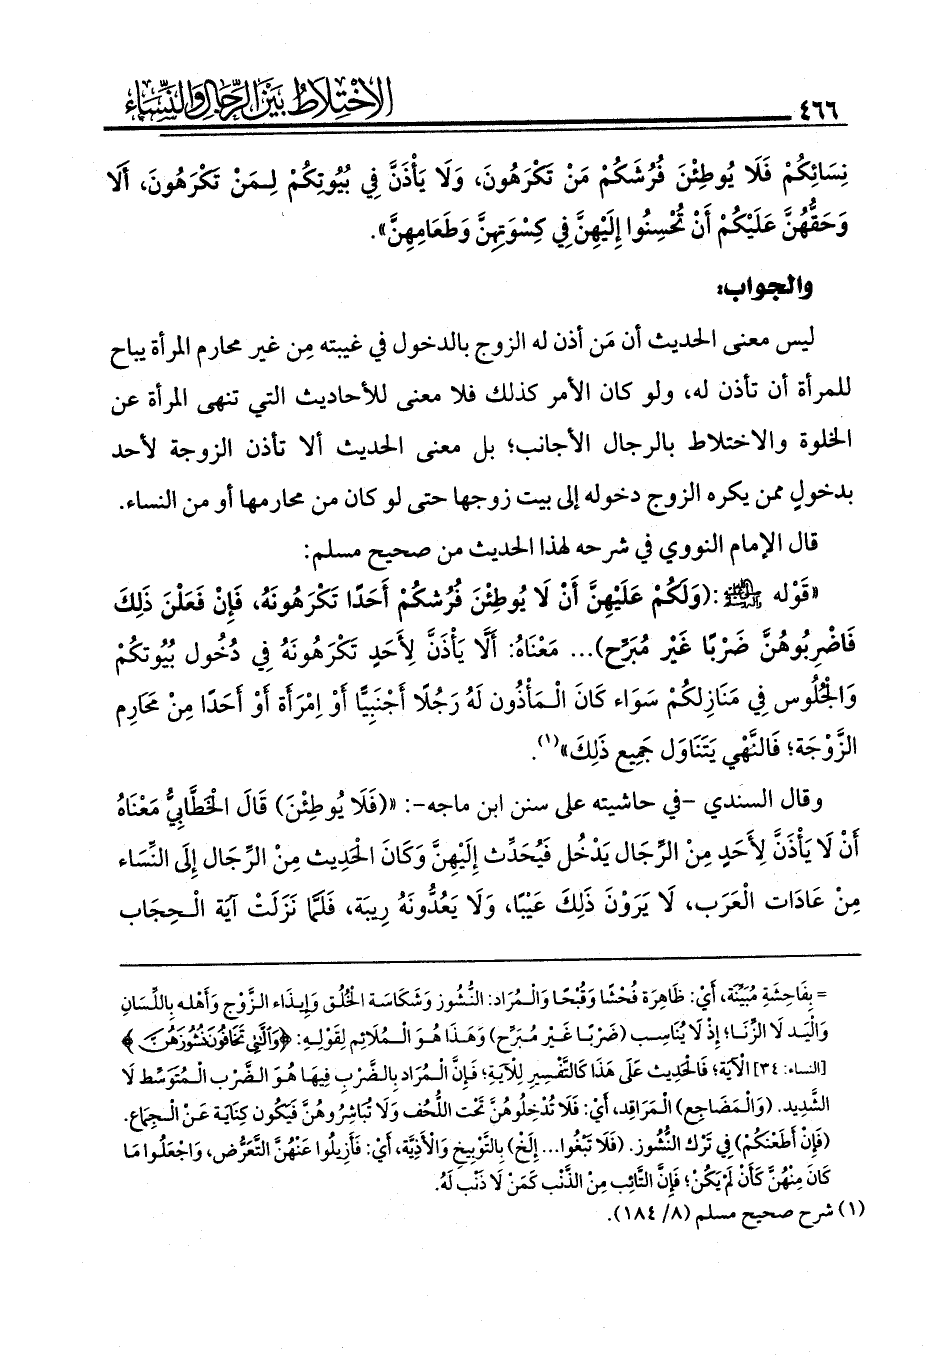 ٤٦٦
الاختلاط بين الرجال والنساء
نِسَائِكُمْ فَلَا يُوطِئْنَ فُرُشَكُمْ مَنْ تَكْرَهُونَ، وَلَا يَأْذَنَّ فِي بُيُوتِكُمْ لِـمَنْ تَكْرَهُونَ، أَلَا
وَحَقُّهُنَّ عَلَيْكُمْ أَنْ تُحْسِنُوا إِلَيْهِنَّ فِي كِسْوَتِهِنَّ وَطَعَامِهِنَّ».
والجواب:
ليس معنى الحديث أن مَن أذن له الزوج بالدخول في غيبته مِن غير محارم المرأة يباح
للمرأة أن تأذن له، ولو كان الأمر كذلك فلا معنى للأحاديث التي تنهى المرأة عن
الخلوة والاختلاط بالرجال الأجانب؛ بل معنى الحديث ألا تأذن الزوجة لأحد
بدخولٍ ممن يكره الزوج دخوله إلى بيت زوجها حتى لو كان من محارمها أو من النساء.
قال الإمام النووي في شرحه لهذا الحديث من صحيح مسلم:
«قَوْله ﷺ :(وَلَكُمْ عَلَيْهِنَّ أَنْ لَا يُوطِئْنَ فُرُشكُمْ أَحَدًا تَكْرَهُونَهُ، فَإِنْ فَعَلْنَ ذَلِكَ
فَاضْرِبُوهُنَّ ضَرْبًا غَيْر مُبَرِّح)... مَعْنَاهُ: أَلَّا يَأْذَنَّ لِأَحَدٍ تَكْرَهُونَهُ فِي دُخُول بُيُوتكُمْ
وَالْجُلُوس فِي مَنَازِلكُمْ سَوَاء كَانَ الْـمَأْذُون لَهُ رَجُلًا أَجْنَبِيًّا أَوْ اِمْرَأَة أَوْ أَحَدًا مِنْ مَحَارِم
الزَّوْجَة؛ فَالنَّهْي يَتَنَاوَل جَمِيع ذَلِكَ»(١).
وقال السندي -في حاشيته على سنن ابن ماجه-: «(فَلَا يُوطِئْنَ) قَالَ الْخَطَّابِيُّ مَعْنَاهُ
أَنْ لَا يَأْذَنَّ لِأَحَدٍ مِنْ الرِّجَال يَدْخُل فَيُحَدِّث إِلَيْهِنَّ وَكَانَ الْحَدِيث مِنْ الرِّجَال إِلَى النِّسَاء
مِنْ عَادَات الْعَرَب، لَا يَرَوْنَ ذَلِكَ عَيْبًا، وَلَا يَعُدُّونَهُ رِيبَة، فَلَمَّا نَزَلَتْ آيَة الْـحِجَاب
= بِفَاحِشَةٍ مُبَيِّنَة، أَيْ: ظَاهِرَة فُحْشًا وَقُبْحًا وَالْـمُرَاد: النُّشُوز وَشَكَاسَة الْخُلُق وَإِيذَاء الـزَّوْج وَأَهْله بِاللِّسَانِ
وَالْيَد لَا الزِّنَا؛ إِذْ لَا يُنَاسِب (ضَرْبًا غَيْر مُبَرِّح) وَهَذَا هُوَ الْـمُلَائِم لِقَوْلِهِ: ﴿وَاللَّاتِي تَخَافُونَ نُشُوزَهُنَّ﴾
[النساء: ٣٤] الْآيَة؛ فَالْحَدِيث عَلَى هَذَا كَالتَّفْسِيرِ لِلْآيَةِ؛ فَإِنَّ الْـمُرَاد بِالضَّرْبِ فِيهَا هُوَ الضَّرْب الْـمُتَوَسِّط لَا
الشَّدِيد. (وَالْـمَضَاجِع) الْـمَرَاقِد، أَيْ: فَلَا تُدْخِلُوهُنَّ تَحْت اللُّحُف وَلَا تُبَاشِرُوهُنَّ فَيَكُون كِنَايَة عَنْ الْـجِمَاع.
(فَإِنْ أَطَعْنَكُمْ) فِي تَرْك النُّشُوز. (فَلَا تَبْغُوا... إِلَخْ) بِالتَّوْبِيخِ وَالْأَذِيَّة، أَيْ: فَأَزِيلُوا عَنْهُنَّ التَّعَرُّض، وَاجْعَلُوا مَا
كَانَ مِنْهُنَّ كَأَنْ لَمْ يَكُنْ؛ فَإِنَّ التَّائِب مِنْ الذَّنْب كَمَنْ لَا ذَنْب لَهُ.
(١) شرح صحيح مسلم (٨/ ١٨٤).